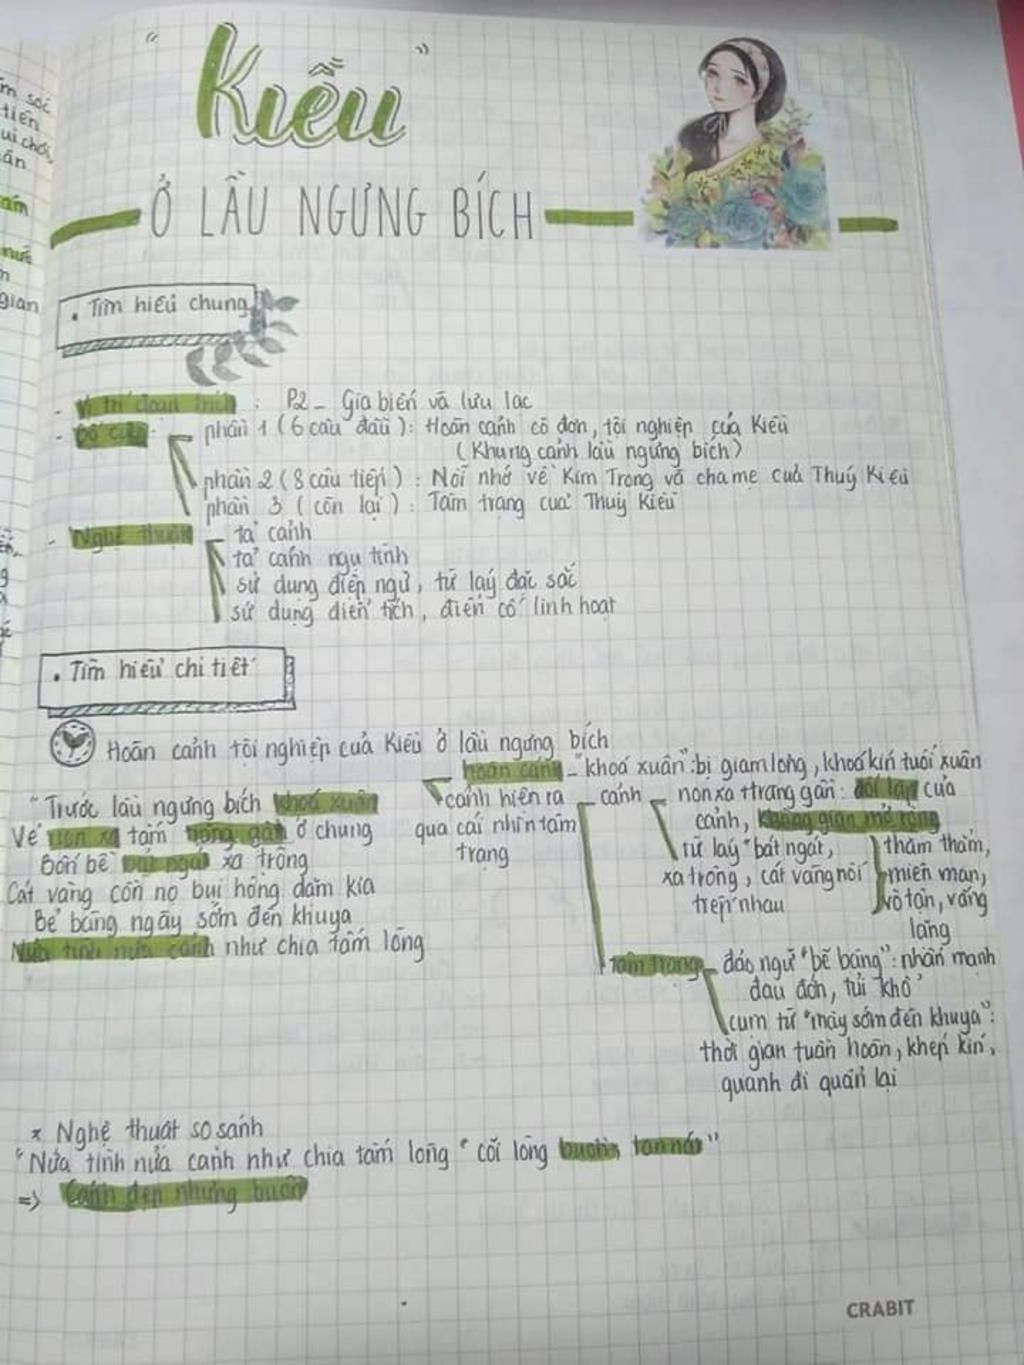 "Kiều"
Ở LẦU NGƯNG BÍCH
• Tìm hiểu chung
- Vị trí đoạn trích : P2 - Gia biến và lưu lạc
- Bố cục: phần 1 (6 câu đầu): Hoàn cảnh cô đơn, tội nghiệp của Kiều
(Khung cảnh lầu ngưng bích)
phần 2 (8 câu tiếp) : Nỗi nhớ về Kim Trọng và cha mẹ của Thuý Kiều
phần 3 (còn lại) : Tâm trạng của Thuý Kiều
- Nghệ thuật - tả cảnh
tả cảnh ngụ tình
sử dụng điệp ngữ, từ láy đặc sắc
sử dụng điển tích, điển cố linh hoạt
• Tìm hiểu chi tiết
Hoàn cảnh tội nghiệp của Kiều ở lầu ngưng bích
"Trước lầu ngưng bích khoá xuân
Vẻ non xa tấm trăng gần ở chung
Bốn bề bát ngát xa trông
Cát vàng cồn nọ bụi hồng dặm kia
Bẽ bàng mây sớm đèn khuya
Nửa tình nửa cảnh như chia tấm lòng
hoàn cảnh - "khoá xuân": bị giam lỏng, khoá kín tuổi xuân
cảnh hiện ra
qua cái nhìn tâm
trạng
cảnh
non xa + trăng gần: đối lập của
cảnh, không gian mở rộng
từ láy "bát ngát,
xa trông, cát vàng nối
tiếp nhau
thăm thẳm,
miên man,
vô tận, vắng
lặng
Tâm trạng - đảo ngữ "bẽ bàng": nhấn mạnh
đau đớn, tủi khổ
cụm từ "mây sớm đèn khuya":
thời gian tuần hoàn, khép kín,
quanh đi quẩn lại
* Nghệ thuật so sánh
"Nửa tình nửa cảnh như chia tấm lòng" cõi lòng buồn, tan nát"
=> Cảnh đẹp nhưng buồn
CRABIT